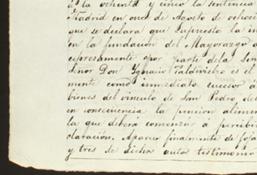 á la ochenta y cinco la sentencia
Madrid en once de Agosto de ochocie
que se declara que supuesto la in
en la fundacion del Mayorazgo a
espresamente por parte de la Señ
Señor Don Ygnacio Valdivielso es el
mente como inmediato sucesor á
bienes del vinculo de San Pedro de
en consecuencia la pension alimen
la que deberá comenzar á percibir
claracion. Aparece finalmente de foja
y tres de dichos autos testimonio